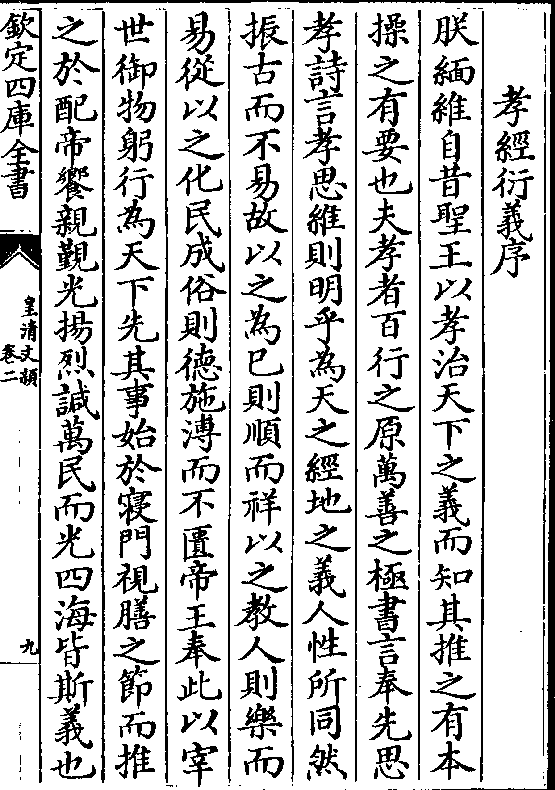 孝經衍義序
朕緬維自昔聖王以孝治天下之義而知其推之有本
操之有要也夫孝者百行之原萬善之極書言奉先思
孝詩言孝思維則明乎為天之經地之義人性所同然
振古而不易故以之為已則順而祥以之教人則樂而
易從以之化民成俗則德施溥而不匱帝王奉此以宰
世御物躬行為天下先其事始於寢門視膳之節而推
之於配帝饗親覲光揚烈諴萬民而光四海皆斯義也
欽定四庫全書
皇清文穎
卷二
九